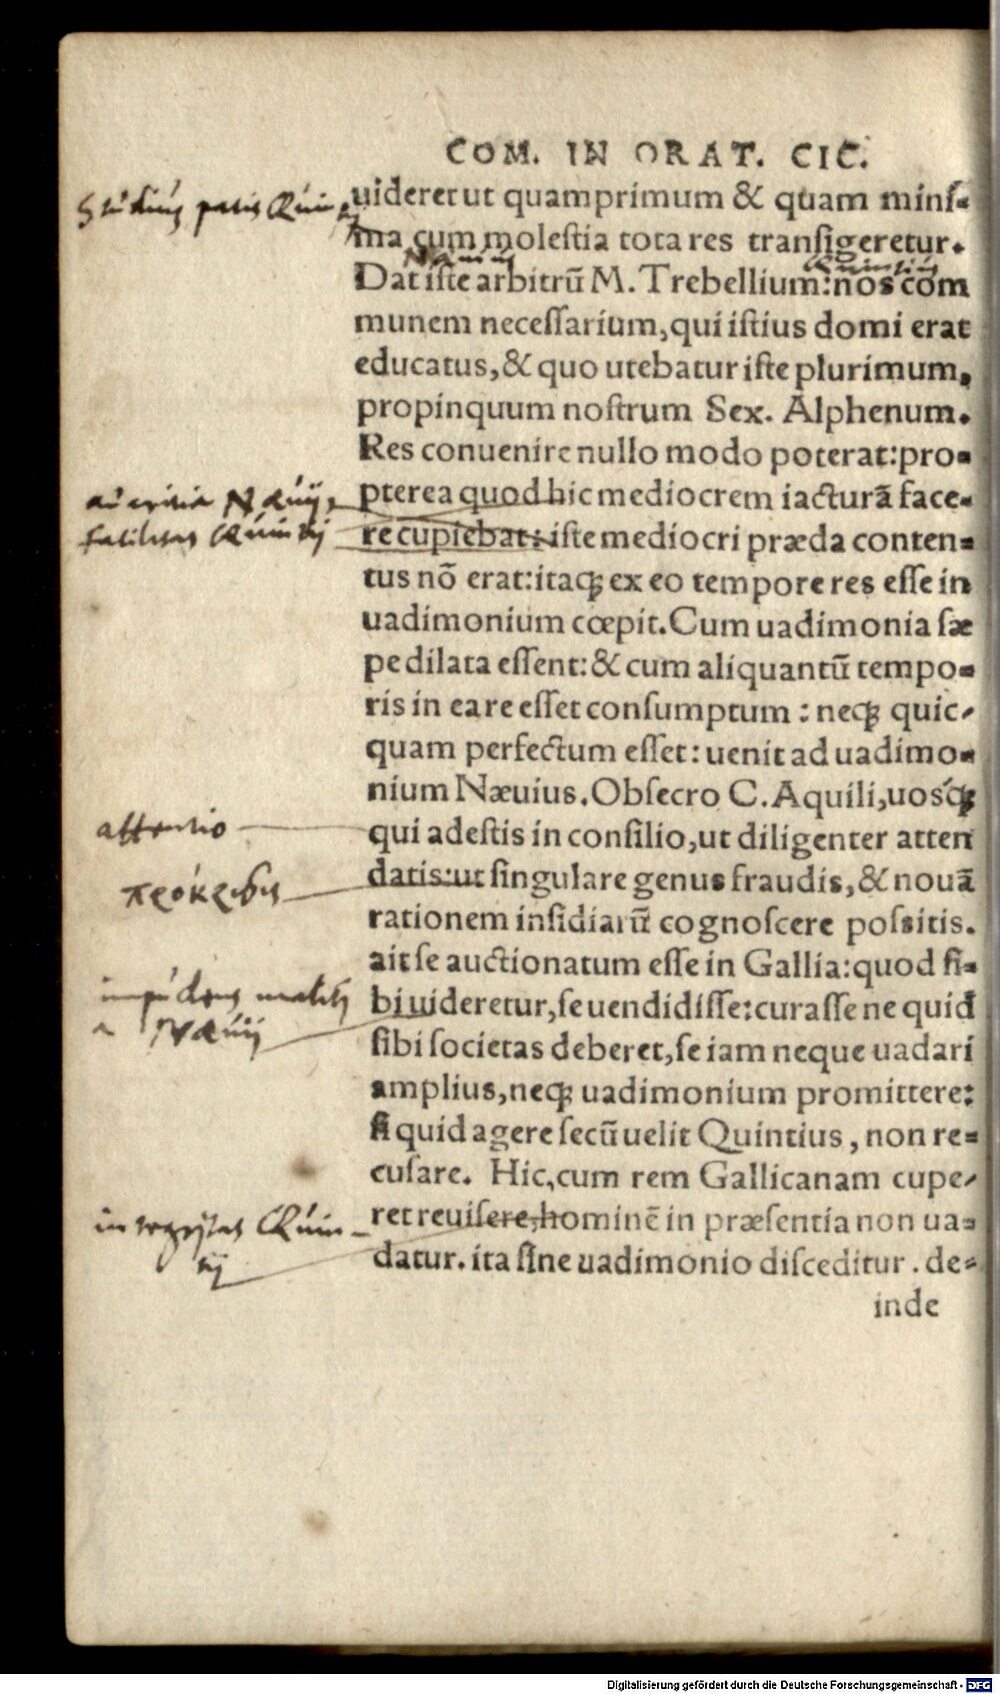 COM. IN ORAT. CIC.
uideret ut quamprimum & quam mini-
ma cum molestia tota res transigeretur.
Dat iste arbitrū M. Trebellium: nos com
munem necessarium, qui istius domi erat
educatus, & quo utebatur iste plurimum,
propinquum nostrum Sex. Alphenum.
Res conuenire nullo modo poterat: pro-
pterea quod hic mediocrem iacturā face-
re cupiebat: iste mediocri præda conten-
tus nō erat: itaq; ex eo tempore res esse in
uadimonium cœpit. Cum uadimonia sæ
pe dilata essent: & cum aliquantū tempo-
ris in ea re esset consumptum: neq; quic-
quam perfectum esset: uenit ad uadimo-
nium Næuius. Obsecro C. Aquili, uosq;
qui adestis in consilio, ut diligenter atten
datis: ut singulare genus fraudis, & nouā
rationem insidiarū cognoscere possitis.
ait se auctionatum esse in Gallia: quod si-
bi uideretur, se uendidisse: curasse ne quid
sibi societas deberet, se iam neque uadari
amplius, neq; uadimonium promittere:
si quid agere secū uelit Quintius, non re-
cusare. Hic, cum rem Gallicanam cupe-
ret reuisere, hominē in præsentia non ua-
datur. ita sine uadimonio disceditur. de-
inde
Studiũ pacis Quin
Næuius
Quintius
auaritia Næuij,
facilitas Quintij
attentio
impudens
Næuij
integritas Quin-
tij
Digitalisierung gefördert durch die Deutsche Forschungsgemeinschaft - DFG